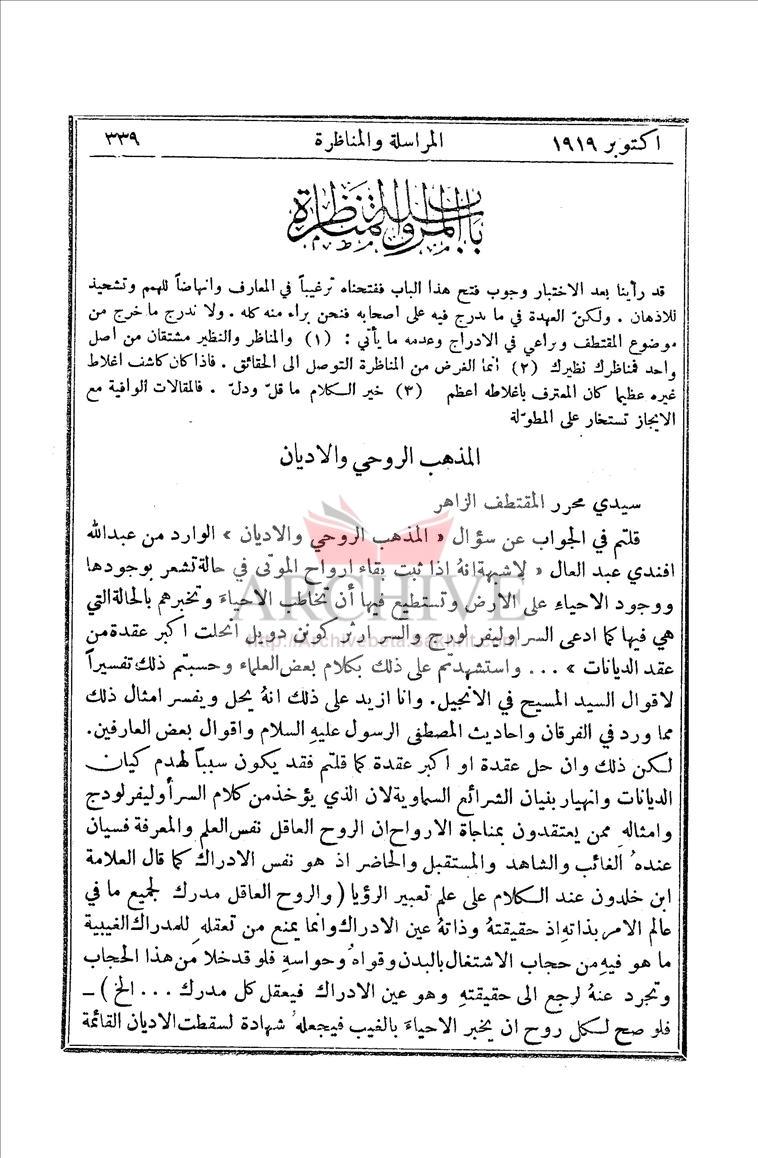 اكتوبر ١٩١٩ المراسلة والمناظرة ٣٣٩
باب المراسلة والمناظرة
قد رأينا بعد الاختبار وجوب فتح هذا الباب ففتحناه ترغيباً في المعارف وانهاضاً للهمم وتشحيذ
للاذهان . ولكنّ العهدة في ما يدرج فيه على اصحابه فنحن براء منه كله . ولا ندرج ما خرج عن
موضوع المقتطف ونراعي في الادراج وعدمه ما يأتي : (١) والمناظر والنظير مشتقان من اصل
واحد فمناظرك نظيرك (٢) انما الغرض من المناظرة التوصل الى الحقائق . فاذا كان كاشف اغلاط
غيره عظيما كان المعترف باغلاطه اعظم (٣) خير الكلام ما قلّ ودلّ . فالمقالات الوافية مع
الايجاز تستخار على المطوّلة
المذهب الروحي والاديان
سيدي محرر المقتطف الزاهر
قلتم في الجواب عن سؤال « المذهب الروحي والاديان » الوارد من عبدالله
افندي عبد العال « لاشبهة انهُ اذا ثبت بقاء ارواح الموتى في حالة تشعر بوجودها
ووجود الاحياء على الارض وتستطيع فيها أن تخاطب الاحياء وتخبرهم بالحالة التي
هي فيها كما ادعى السر اوليفر لودج والسر ارثر كونن دويل انحلت اكبر عقدة من
عقد الديانات » ... واستشهدتم على ذلك بكلام بعض العلماء وحسبتم ذلك تفسيراً
لاقوال السيد المسيح في الانجيل. وانا ازيد على ذلك انهُ يحل ويفسر امثال ذلك
مما ورد في الفرقان واحاديث المصطفى الرسول عليهِ السلام واقوال بعض العارفين.
لكن ذلك وان حل عقدة او اكبر عقدة كما قلتم فقد يكون سبباً لهدم كيان
الديانات وانهيار بنيان الشرائع السماوية لان الذي يؤخذ من كلام السر أوليفر لودج
وامثالهِ ممن يعتقدون بمناجاة الارواح ان الروح العاقل نفس العلم والمعرفة فسيان
عندهُ الغائب والشاهد والمستقبل والحاضر اذ هو نفس الادراك كما قال العلامة
ابن خلدون عند الكلام على علم تعبير الرؤيا ( والروح العاقل مدرك لجميع ما في
عالم الامر بذاتهِ اذ حقيقتهُ وذاتهُ عين الادراك وانما يمنع من تعقلهِ للمدارك الغيبية
ما هو فيهِ من حجاب الاشتغال بالبدن وقواهُ وحواسهِ فلو قد خلا من هذا الحجاب
وتجرد عنهُ لرجع الى حقيقتهِ وهو عين الادراك فيعقل كل مدرك ... الخ ) ــ
فلو صح لكل روح ان يخبر الاحياء بالغيب فيجعلهُ شهادة لسقطت الاديان القائمة
ARCHIVE